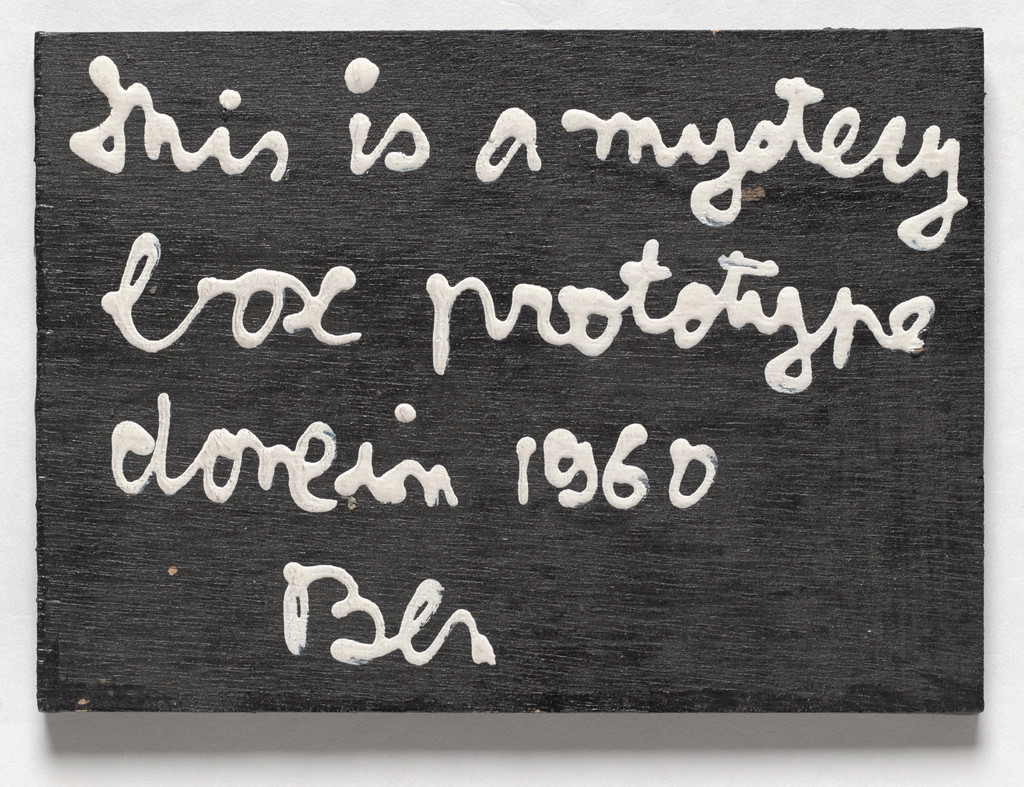 this is a mystery
box prototype
done in 1960
Ben